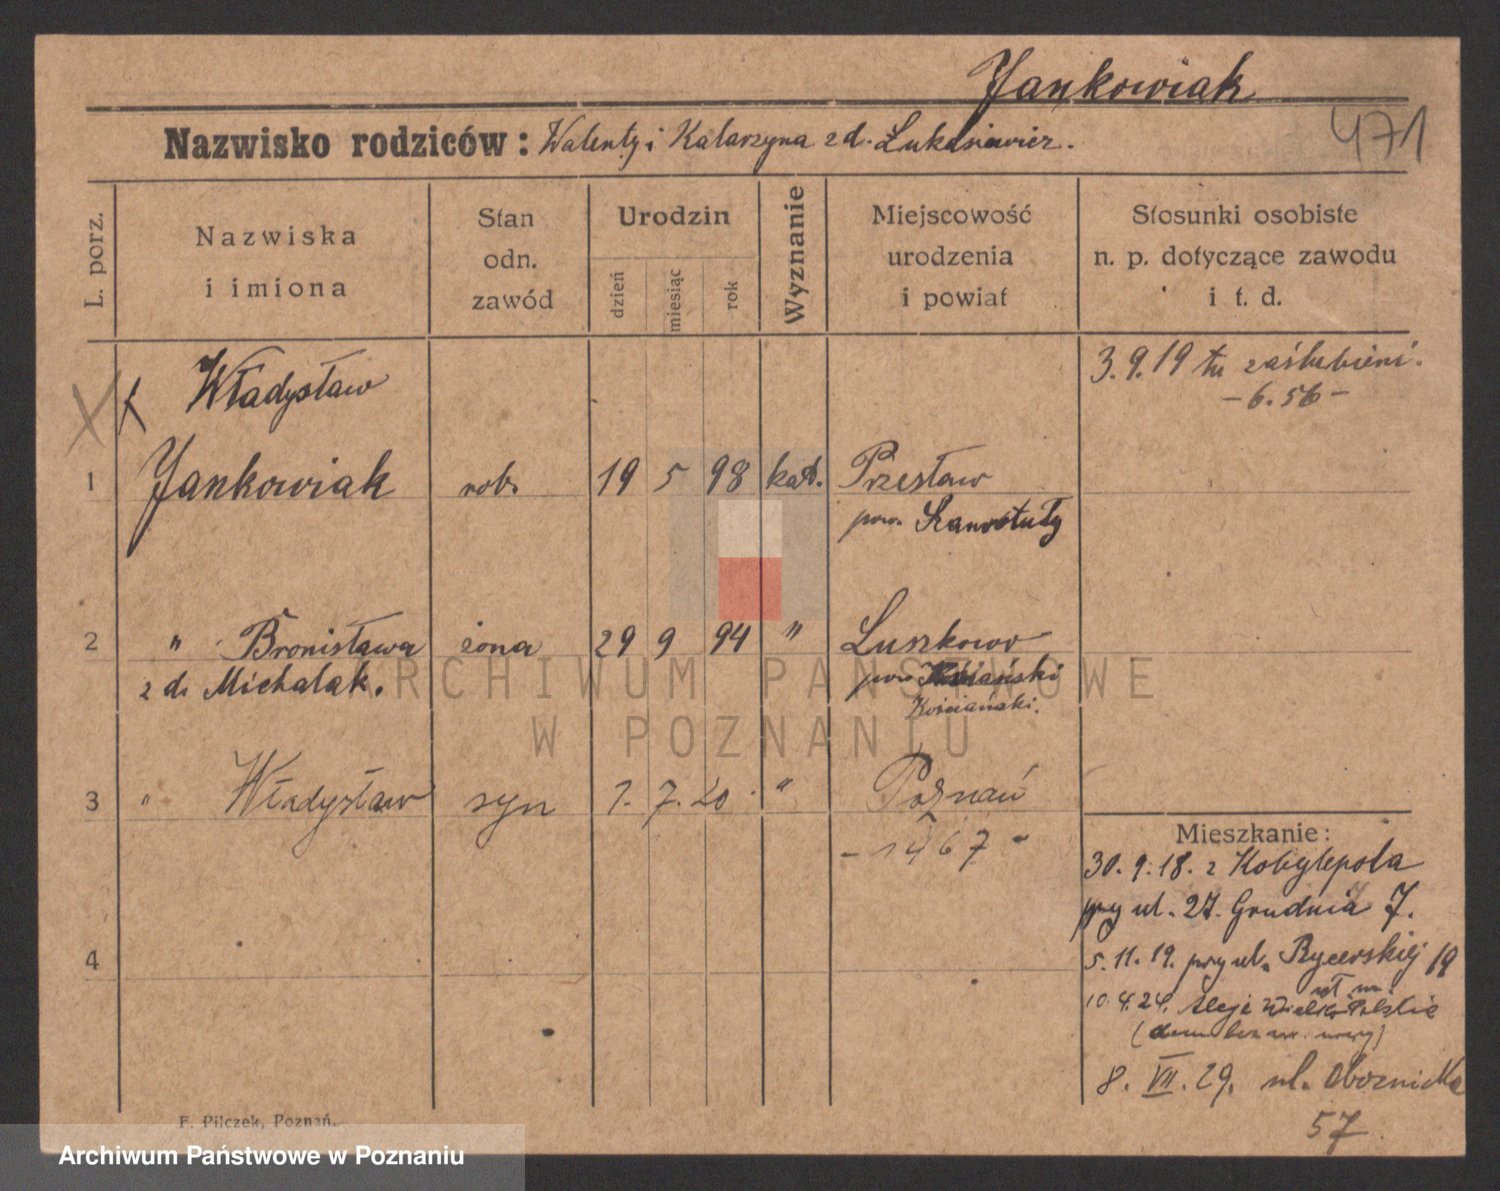 Jankowiak
471
Nazwisko rodziców: Walenty i Katarzyna z d. Łukasiewicz.
L. porz.
Nazwiska
i imiona
Stan
odn.
zawód
Urodzin
dzień
miesiąc
rok
Wyznanie
Miejscowość
urodzenia
i powiat
Stosunki osobiste
n. p. dotyczące zawodu
i t. d.
Władysław
3.9.19 tu zaślubieni.
- 6.56 -
1 Jankowiak rob. 19 5 98 kat. Przesław
pow. Szamotuły
2 " Bronisława żona 29 9 94 " Luszkowo
z d. Michalak. pow.
Kościański.
3 " Władysław syn 1. 7. 20 " Poznań
- 1467 -
4
Mieszkanie:
30.9.18. z Kobylepola
przy ul. 27. Grudnia 7.
5.11.19. przy ul. Rycerskiej 19
10.4.24. Aleje Wielkopolskie
(dom bez nr. nowy)
8. VII. 29. ul. Obornicka
57
F. Pilczek, Poznań.
ARCHIWUM PAŃSTWOWE
W POZNANIU
Archiwum Państwowe w Poznaniu